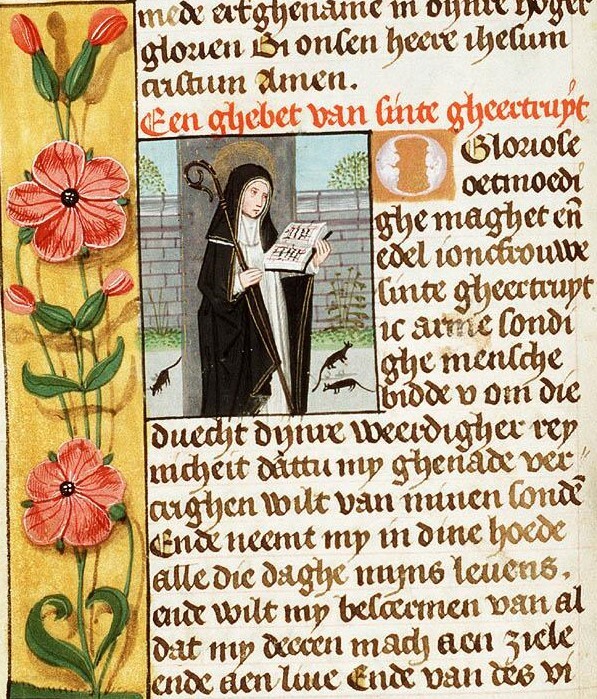 mede eert ghename in dijnre hogher
glorien Bi onsen heere ihesum
cristum Amen.
Een ghebet van sinte gheertruyt
O Gloriose
oetmoedi
ghe maghet eñ
edel ioncfrouwe
sinte gheertruyt
ic arme sondi
ghe mensche
bidde v om die
duecht dijnre weerdigher rey
nicheit dattu my ghenade ver
crighen wilt van minen sondē
Ende neemt my in dine hoede
alle die daghe mijns levens.
ende wilt my bescermen van al
dat my deeren mach aen ziele
ende aen live Ende van des vi